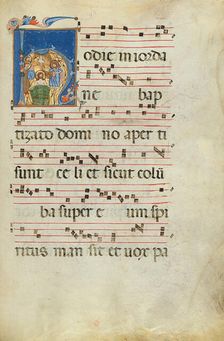 odie in iorda
ne bap
tizato domi no aper ti
sunt ce li et sicut colū
ba super e um spi
ritus man sit et uox pa